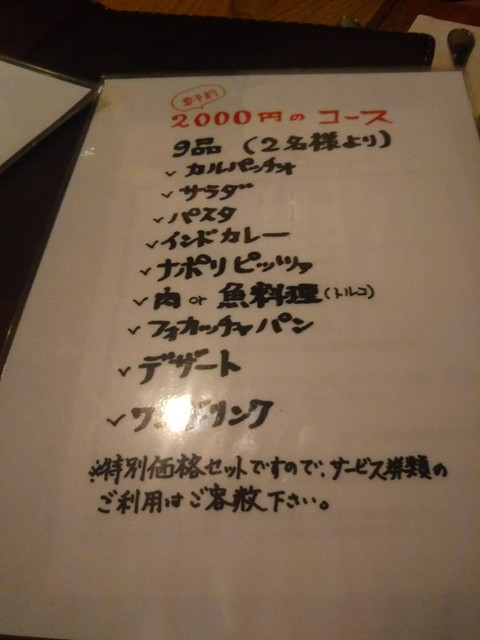 要予約
2000円のコース
9品（2名様より）
✓カルパッチョ
✓サラダ
✓パスタ
✓インドカレー
✓ナポリピッツァ
✓肉or魚料理(トルコ)
✓フォカッチャパン
✓デザート
✓ワンドリンク
※特別価格セットですので、サービス券類の
ご利用はご容赦下さい。